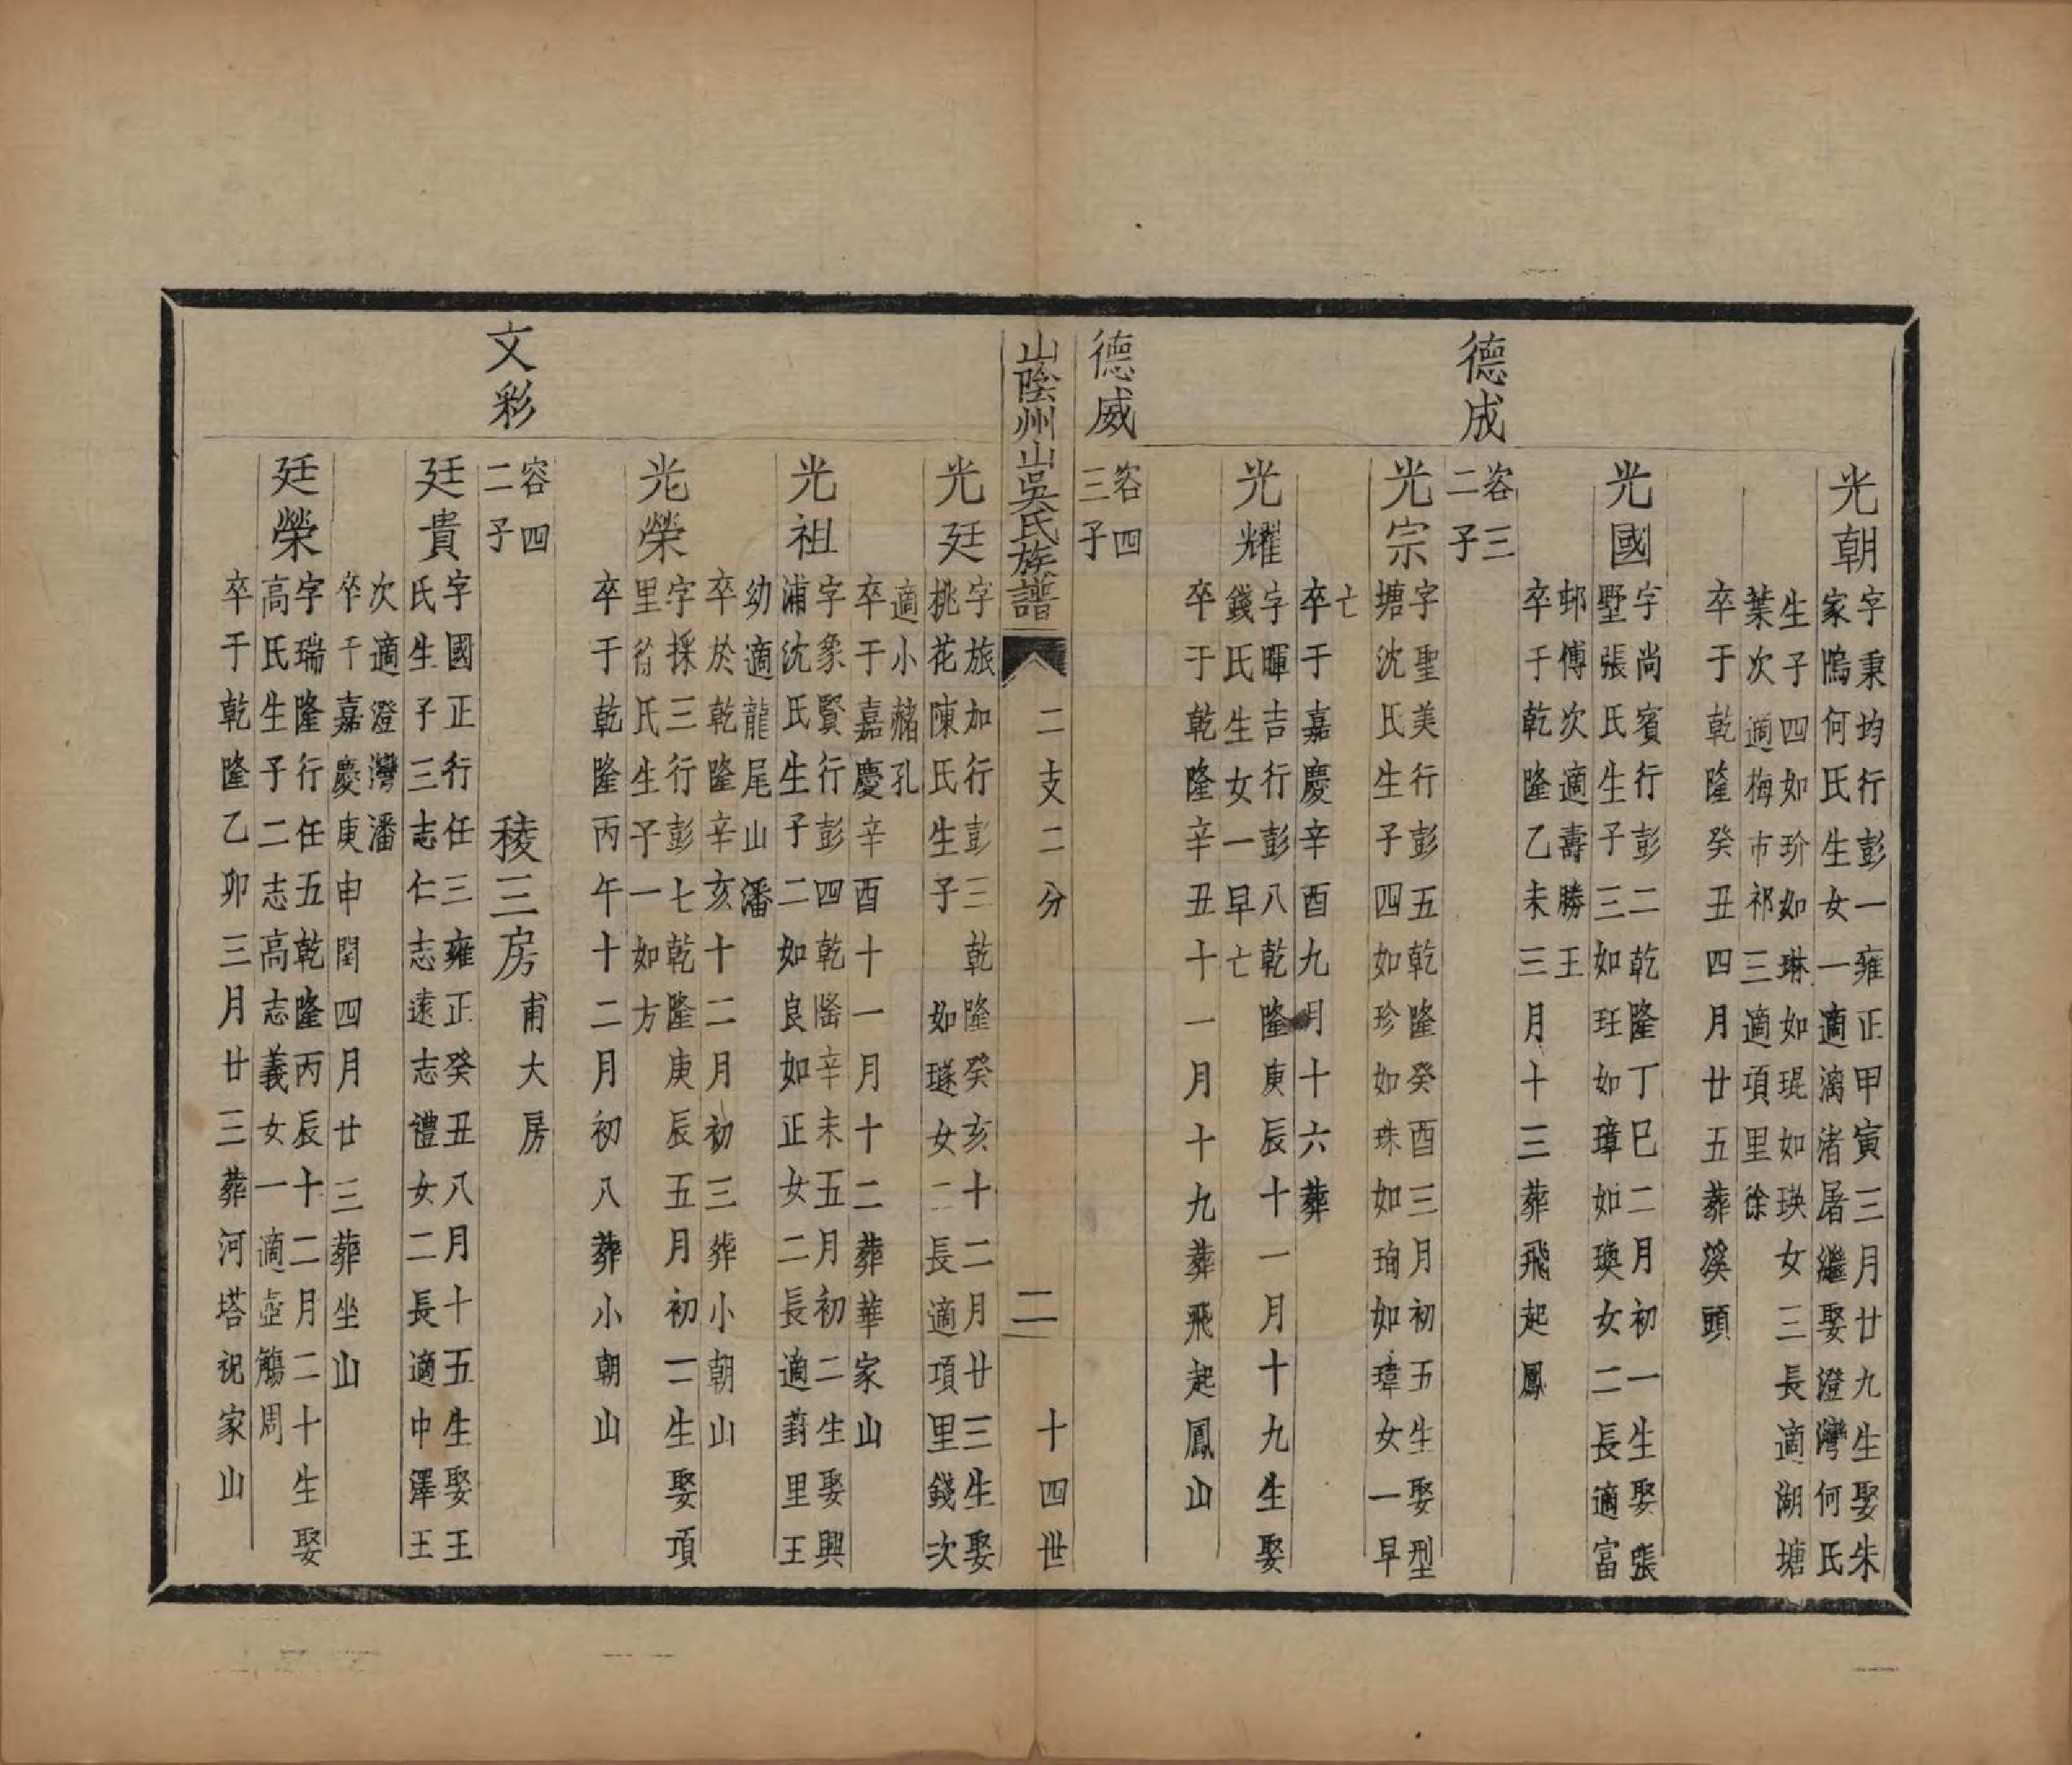 光朝
字秉均行彭一雍正甲寅三月廿九生娶朱
家䲧何氏生女一適漓渚屠繼娶澄灣何氏
生子四如玠如琳如琨如瑛女三長適湖塘
葉次適梅市祁三適項里徐
卒于乾隆癸丑四月廿五葬溪頭
光國
字尚賓行彭二乾隆丁巳二月初一生娶張
墅張氏生子三如玨如璋如瑍女二長適富
邨傅次適壽勝王
卒于乾隆乙未三月十三葬飛起鳳
德成
容三
二子
光宗
字聖美行彭五乾隆癸酉三月初五生娶型
塘沈氏生子四如珍如珠如珣如瑋女一早
亡
卒于嘉慶辛酉九月十六葬
光耀
字暉吉行彭八乾隆庚辰十一月十九生娶
錢氏生女一早亡
卒于乾隆辛丑十一月十九葬飛起鳳山
德威
容四
三子
山陰州山吳氏族譜
二支二分
二
十四世
光廷
字旅加行彭三乾隆癸亥十二月廿三生娶
桃花陳氏生子 如璲女二長適項里錢次
適小赭孔
卒于嘉慶辛酉十一月十二葬華家山
光祖
字象賢行彭四乾隆辛未五月初二生娶興
浦沈氏生子二如良如正女二長適葑里王
幼適龍尾山潘
卒於乾隆辛亥十二月初三葬小朝山
光榮
字採三行彭七乾隆庚辰五月初一生娶項
里徐氏生子一如方
卒于乾隆丙午十二月初八葬小朝山
文彩
容四
二子
稜三房
甫大房
廷貴
字國正行任三雍正癸丑八月十五生娶王
氏生子三志仁志遠志禮女二長適中澤王
次適澄灣潘
卒于嘉慶庚申閏四月廿三葬坐山
廷榮
字瑞隆行任五乾隆丙辰十二月二十生娶
高氏生子二志高志義女一適壺觴周
卒于乾隆乙卯三月廿三葬河塔祝家山